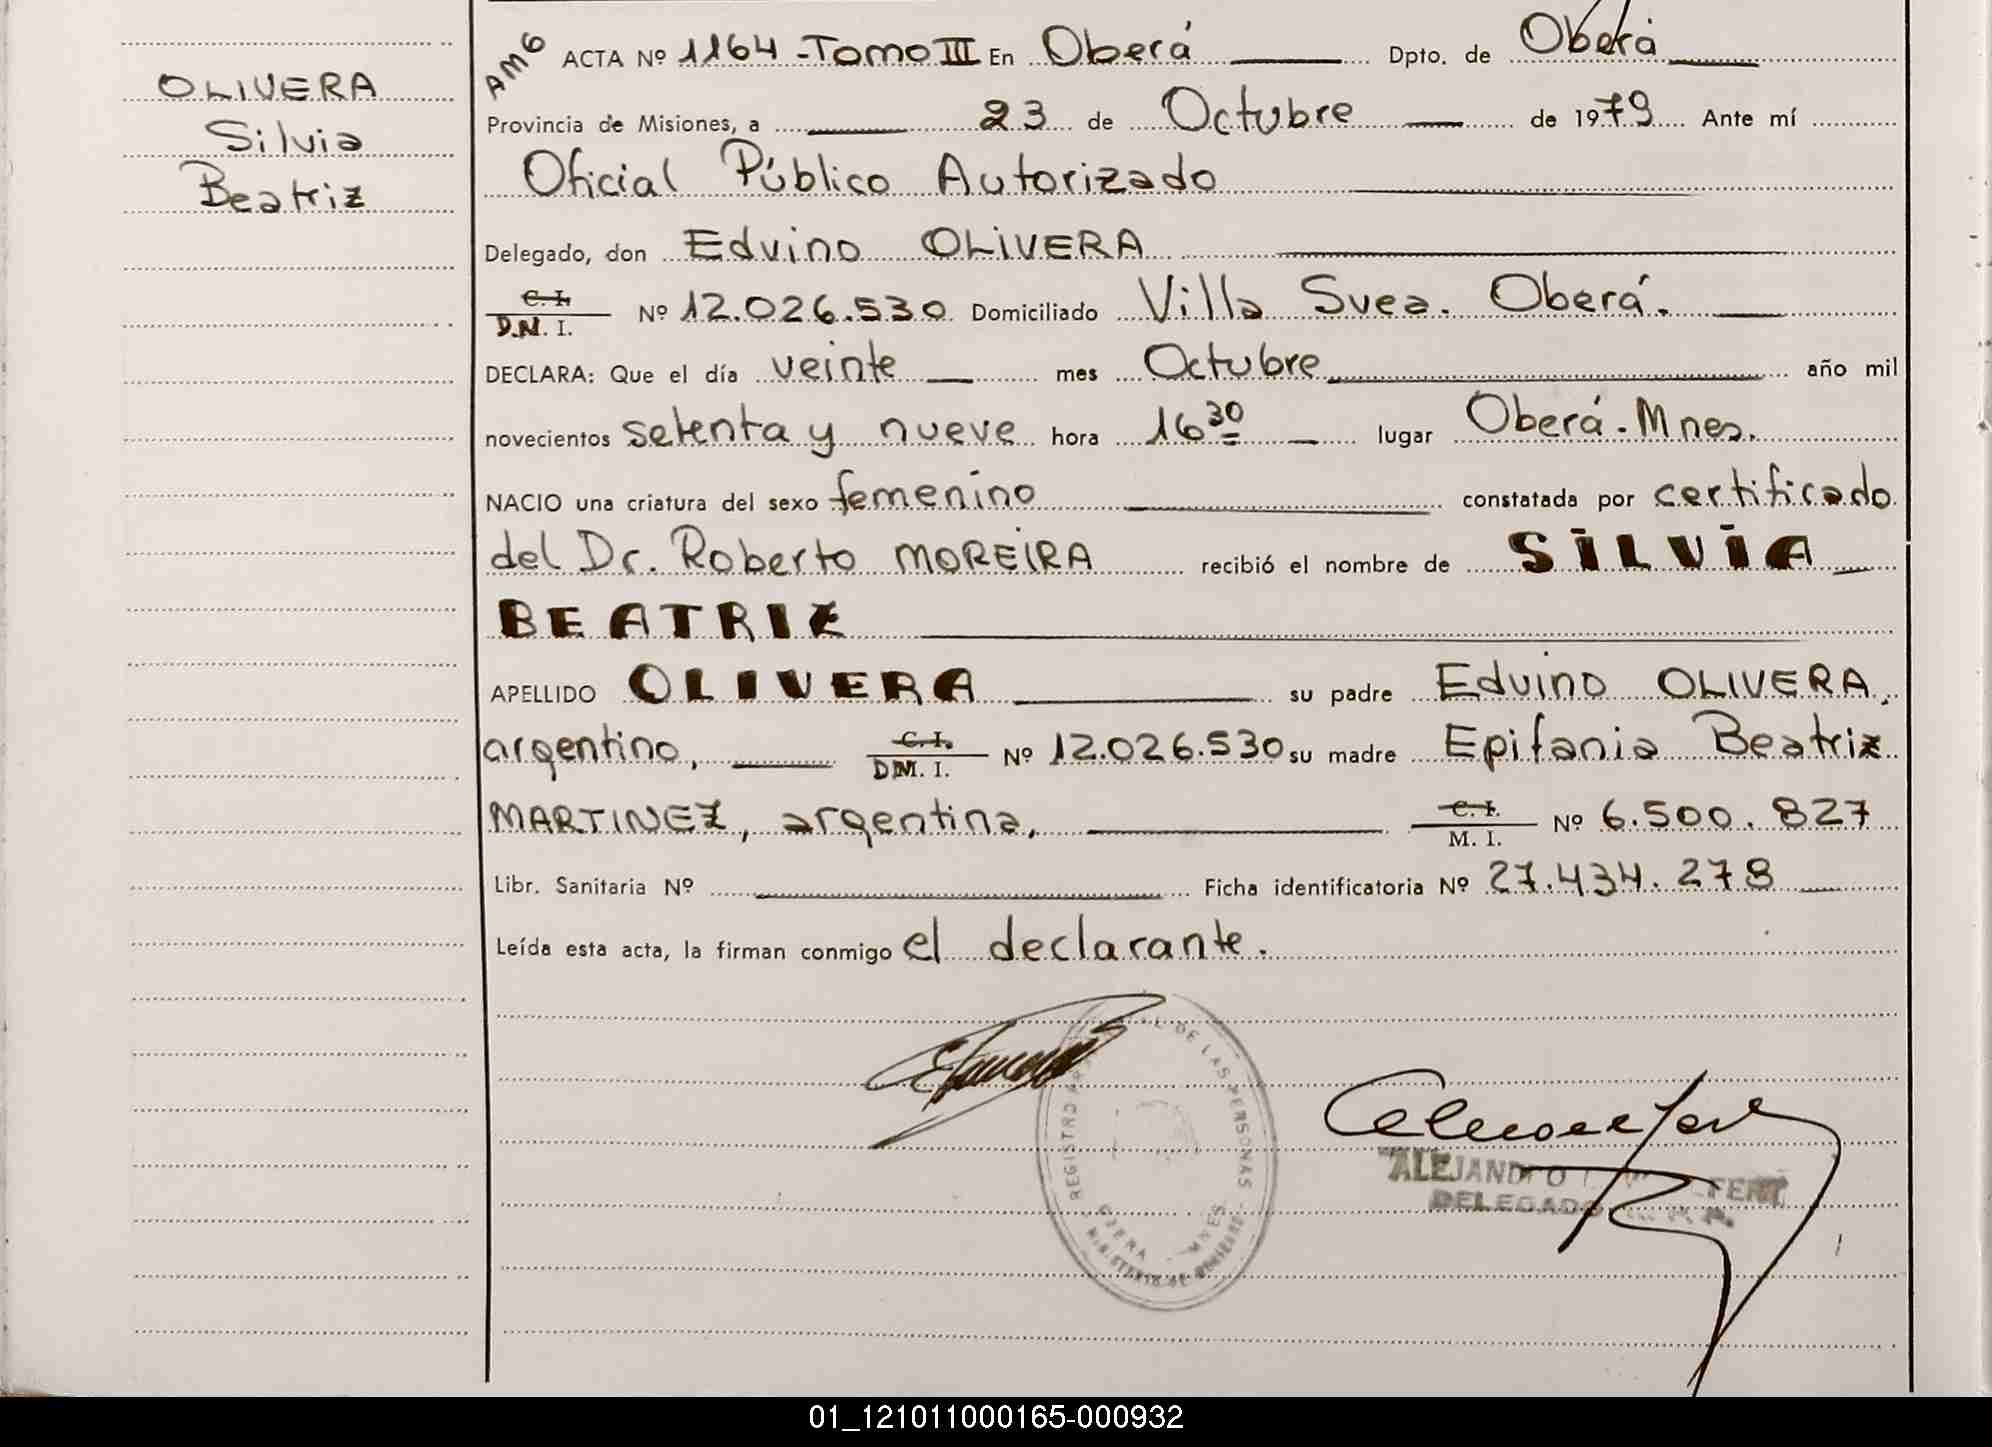 OLIVERA
Silvia
Beatriz
AMG
ACTA Nº 1164 - Tomo III En Oberá Dpto. de Oberá
Provincia de Misiones, a 23 de Octubre de 1979 Ante mí
Oficial Público Autorizado
Delegado, don Edvino OLIVERA
C. I.
D.N. I. Nº 12.026.530 Domiciliado Villa Svea. Oberá.
DECLARA: Que el día veinte mes Octubre año mil
novecientos setenta y nueve hora 16 30 lugar Oberá. Mnes.
NACIO una criatura del sexo femenino constatada por certificado
del Dr. Roberto MOREIRA recibió el nombre de SILVIA
BEATRIZ
APELLIDO OLIVERA su padre Edvino OLIVERA,
argentino, C. I. Nº 12.026.530 su madre Epifania Beatriz
MARTINEZ, argentina, C. I. M. I. Nº 6.500.827
Libr. Sanitaria Nº Ficha identificatoria Nº 27.434.278
Leída esta acta, la firman conmigo el declarante.
DE LAS PERSONAS
ALEJANDRO
DELEGADO
01_121011000165-000932